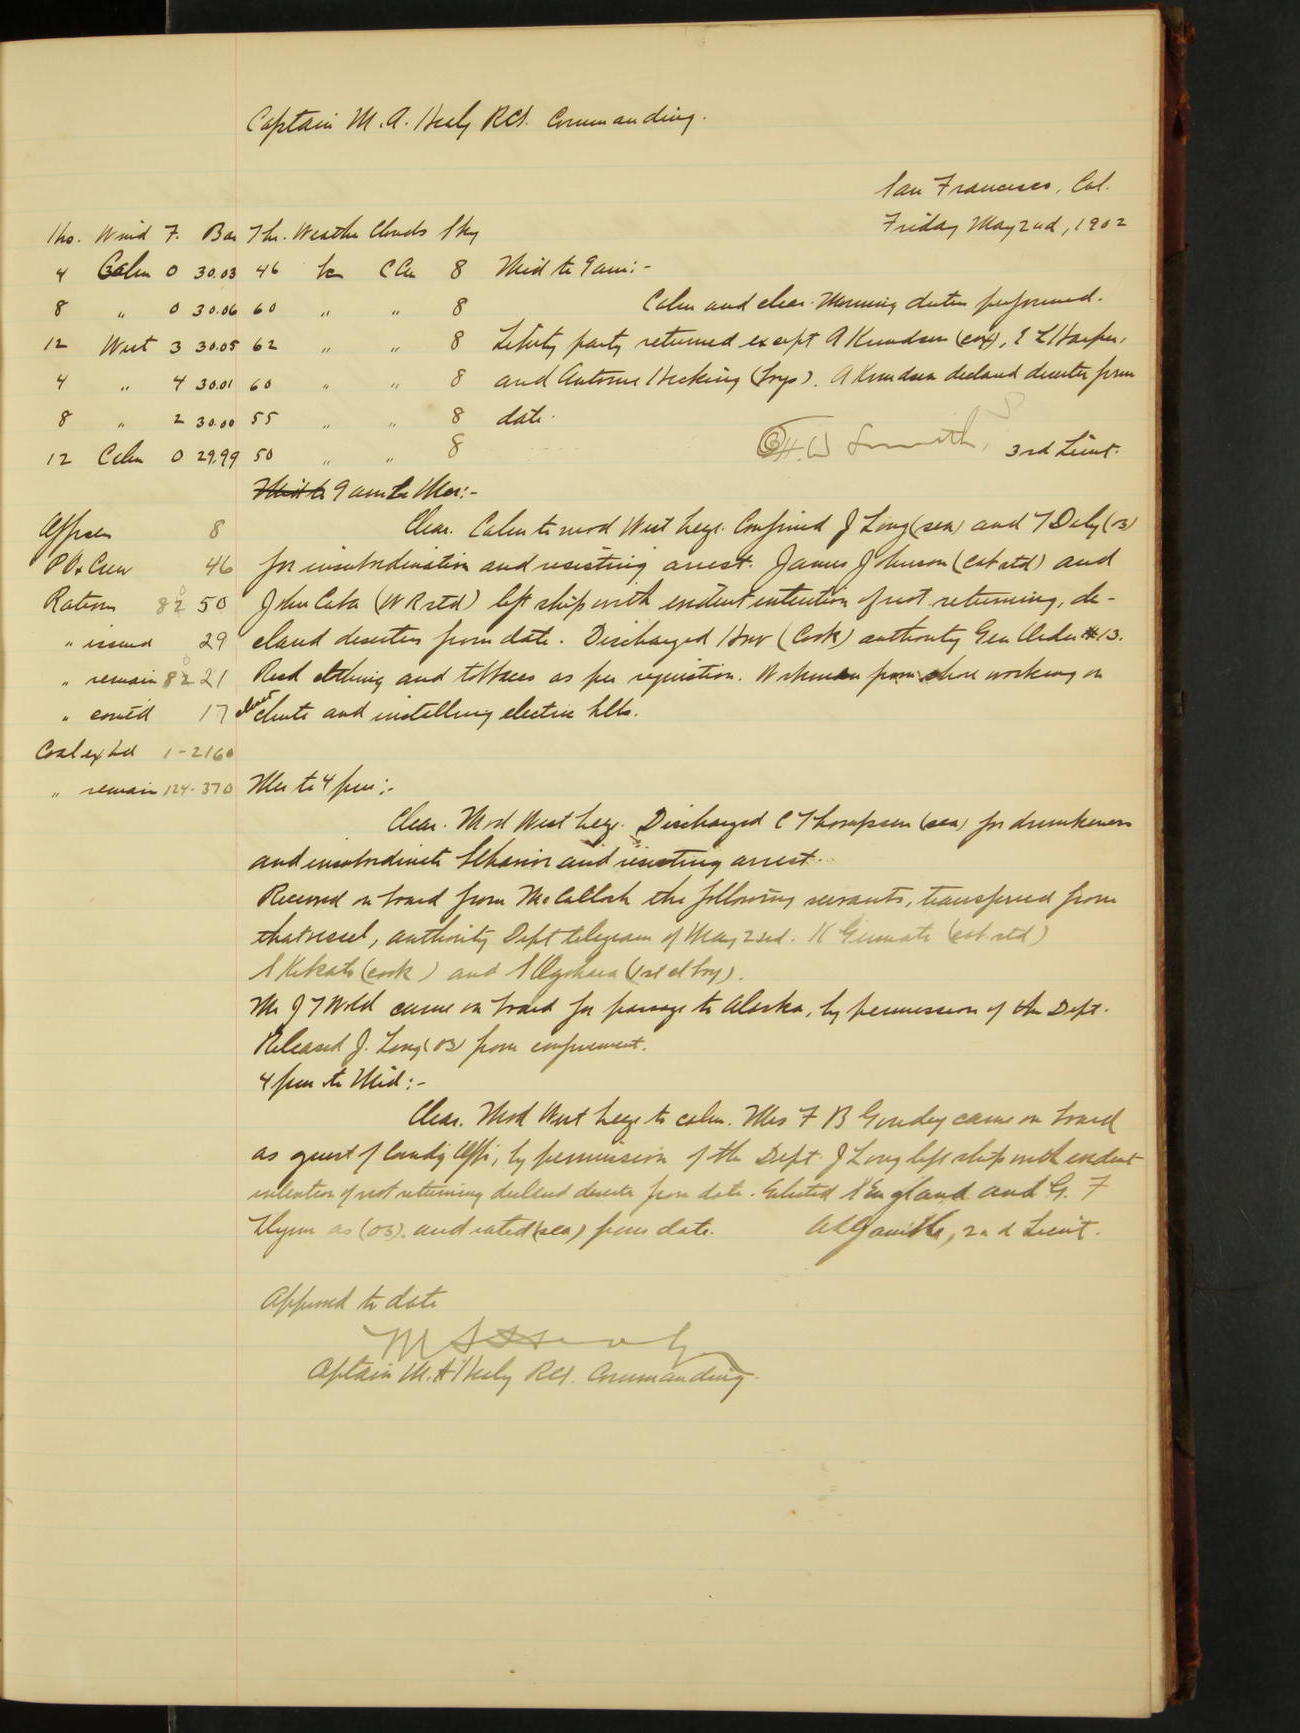 Captain M. A. Healy RCS. Commanding.
San Francisco, Cal.
Friday May 2nd, 1902
Ho. Wind F. Bar Thr. Weather Clouds Sky
4 Calm 0 30.03 46 bc C Cu 8 Mid to 9 am:-
8 " 0 30.06 60 " " 8 Calm and clear. Morning duties performed.
12 West 3 30.05 62 " " 8 Liberty party returned except A Knudsen (cox), E L Harper,
4 " 4 30.01 60 " " 8 and Antone Hocking (boys). A Knudsen declared deserter from
8 " 2 30.00 55 " " 8 date.
12 Calm 0 29.99 50 " " 8
Smith, 3rd Lieut.
Mid to 9 am to Mer:-
Officers 8 Clear. Calm to mod West breeze. Confined J Long (sea) and T Daly (os)
P O & Crew 46 for insubordination and resisting arrest. James Johnson (cab std) and
Rations 50 John (W R std) left ship with evident intention of not returning, de-
" issued 29 clared deserters from date. Discharged (Cook) authority Gen Order # 13.
" remain 21 Recd clothing and tobacco as per requisition. Workmen from shore working on
" comtd 17 chute and installing electric bells.
Coal expd 1-2160
" remain 124-370 Mer to 4 pm:-
Clear. Mod West breeze. Discharged C Thompson (sea) for drunkenness
and insubordinate behavior and resisting arrest.
Received on board from McCulloch the following servants, transferred from
that vessel, authority Dept telegram of May 2nd. K (cab std)
S Kikato (cook) and S (1st cl boy).
Mr J T Wold came on board for passage to Alaska, by permission of the Dept.
Released J. Long (os) from confinement.
4 pm to Mid:-
Clear. Mod West breeze to calm. Mrs F B Goudey came on board
as guest of Comdg Offr, by permission of the Dept. J Long left ship with evident
intention of not returning declared deserter from date. Enlisted S England and G. F
Flynn as (os). and rated (sea) from date. 2nd Lieut.
Approved to date
M A Healy
Captain M. A Healy RCS. Commanding.